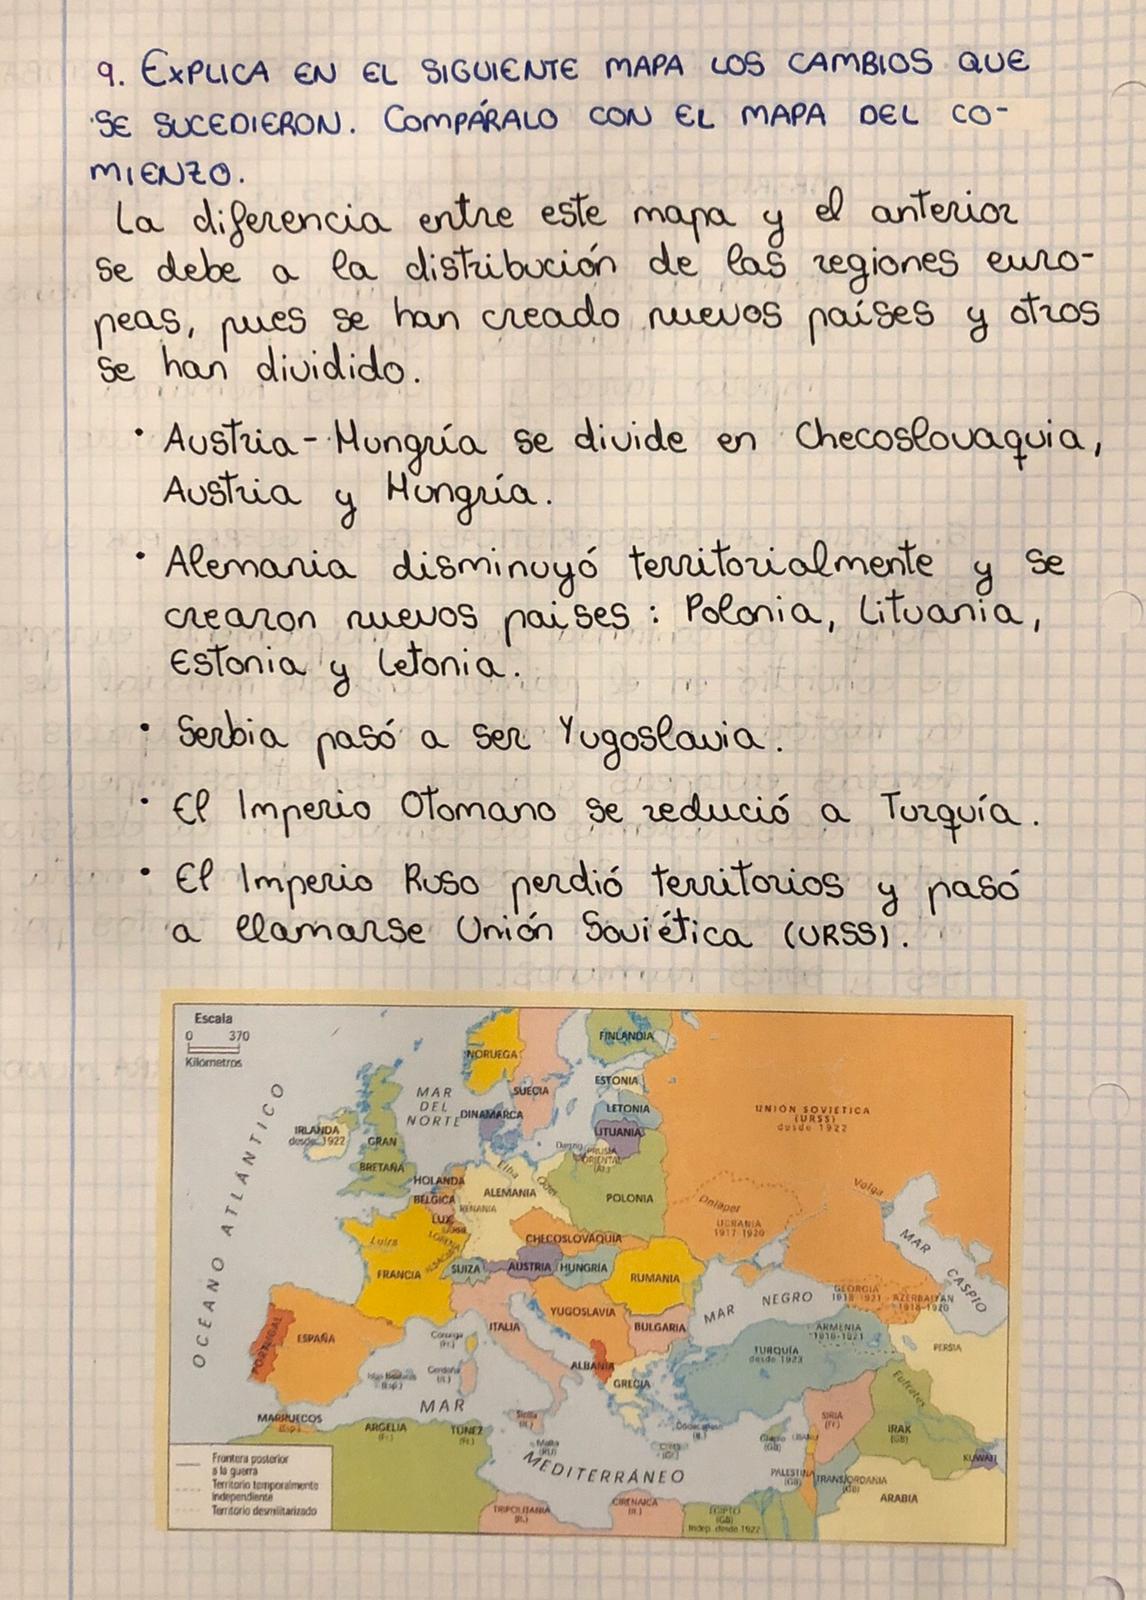 9. EXPLICA EN EL SIGUIENTE MAPA LOS CAMBIOS QUE
SE SUCEDIERON. COMPÁRALO CON EL MAPA DEL CO-
MIENZO.
La diferencia entre este mapa y el anterior
se debe a la distribución de las regiones euro-
peas, pues se han creado nuevos países y otros
se han dividido.
• Austria-Hungría se divide en Checoslovaquia,
Austria y Hungría.
• Alemania disminuyó territorialmente y se
crearon nuevos paises: Polonia, Lituania,
Estonia y Letonia.
• Serbia pasó a ser Yugoslavia.
• El Imperio Otomano se redució a Turquía.
• El Imperio Ruso perdió territorios y pasó
a llamarse Unión Soviética (URSS).
Escala
0 370
Kilómetros
NORUEGA
FINLANDIA
SUECIA
ESTONIA
MAR
DEL
NORTE
DINAMARCA
LETONIA
LITUANIA
UNIÓN SOVIÉTICA
(URSS)
desde 1922
OCÉANO ATLÁNTICO
IRLANDA
desde 1922
GRAN
BRETAÑA
Danzig
PRUSIA
ORIENTAL
(Al.)
HOLANDA
BÉLGICA
RENANIA
LUX.
LORENA
ALSACIA
Elba
Oder
ALEMANIA
POLONIA
Dniéper
Volga
UCRANIA
1917-1920
Loira
CHECOSLOVAQUIA
FRANCIA
SUIZA
AUSTRIA
HUNGRÍA
RUMANIA
MAR CASPIO
MAR NEGRO
GEORGIA
1918-1921
AZERBAIYÁN
1918-1920
PORTUGAL
ESPAÑA
ITALIA
YUGOSLAVIA
BULGARIA
ARMENIA
1918-1921
PERSIA
Córcega
(Fr.)
Cerdeña
(It.)
Islas Baleares
(Esp.)
ALBANIA
GRECIA
TURQUÍA
desde 1923
Éufrates
MAR
MEDITERRÁNEO
MARRUECOS
(Esp.)
ARGELIA
(Fr.)
TÚNEZ
(Fr.)
Sicilia
(It.)
Malta
(RU)
Creta
(Gr.)
Dodecaneso
(It.)
Chipre
(GB)
LÍBANO
SIRIA
(Fr.)
IRAK
(GB)
KUWAIT
PALESTINA
(GB)
TRANSJORDANIA
(GB)
ARABIA
TRIPOLITANIA
(It.)
CIRENAICA
(It.)
EGIPTO
(GB)
Indep. desde 1922
Frontera posterior
a la guerra
Territorio temporalmente
independiente
Territorio desmilitarizado